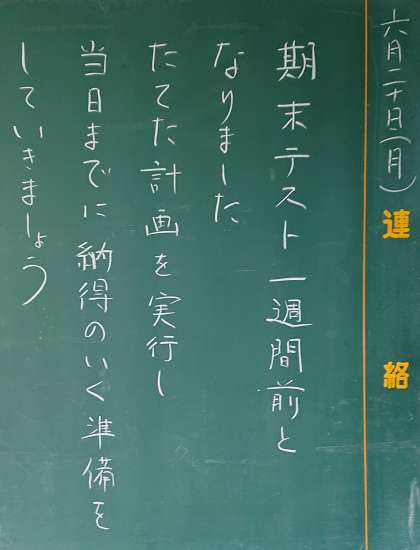 六月二十日(月)
連絡
期末テスト一週間前と
なりました
たてた計画を実行し
当日までに納得のいく準備を
していきましょう